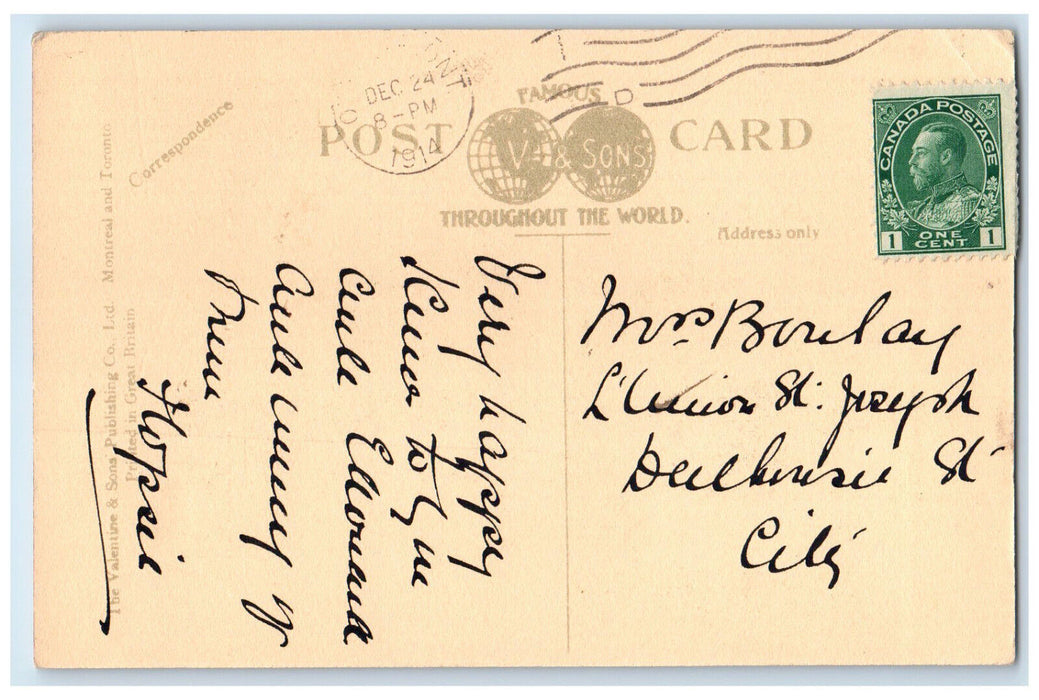 DEC 24
8-PM
1914
FAMOUS
POST CARD
V & SONS
THROUGHOUT THE WORLD.
Correspondence
Address only
CANADA POSTAGE
1 ONE CENT 1
The Valentine & Sons Publishing Co., Ltd. Montreal and Toronto
Printed in Great Britain
Very happy
to you
and
and many
Mrs
L'Union St. Joseph
Dalhousie St
City